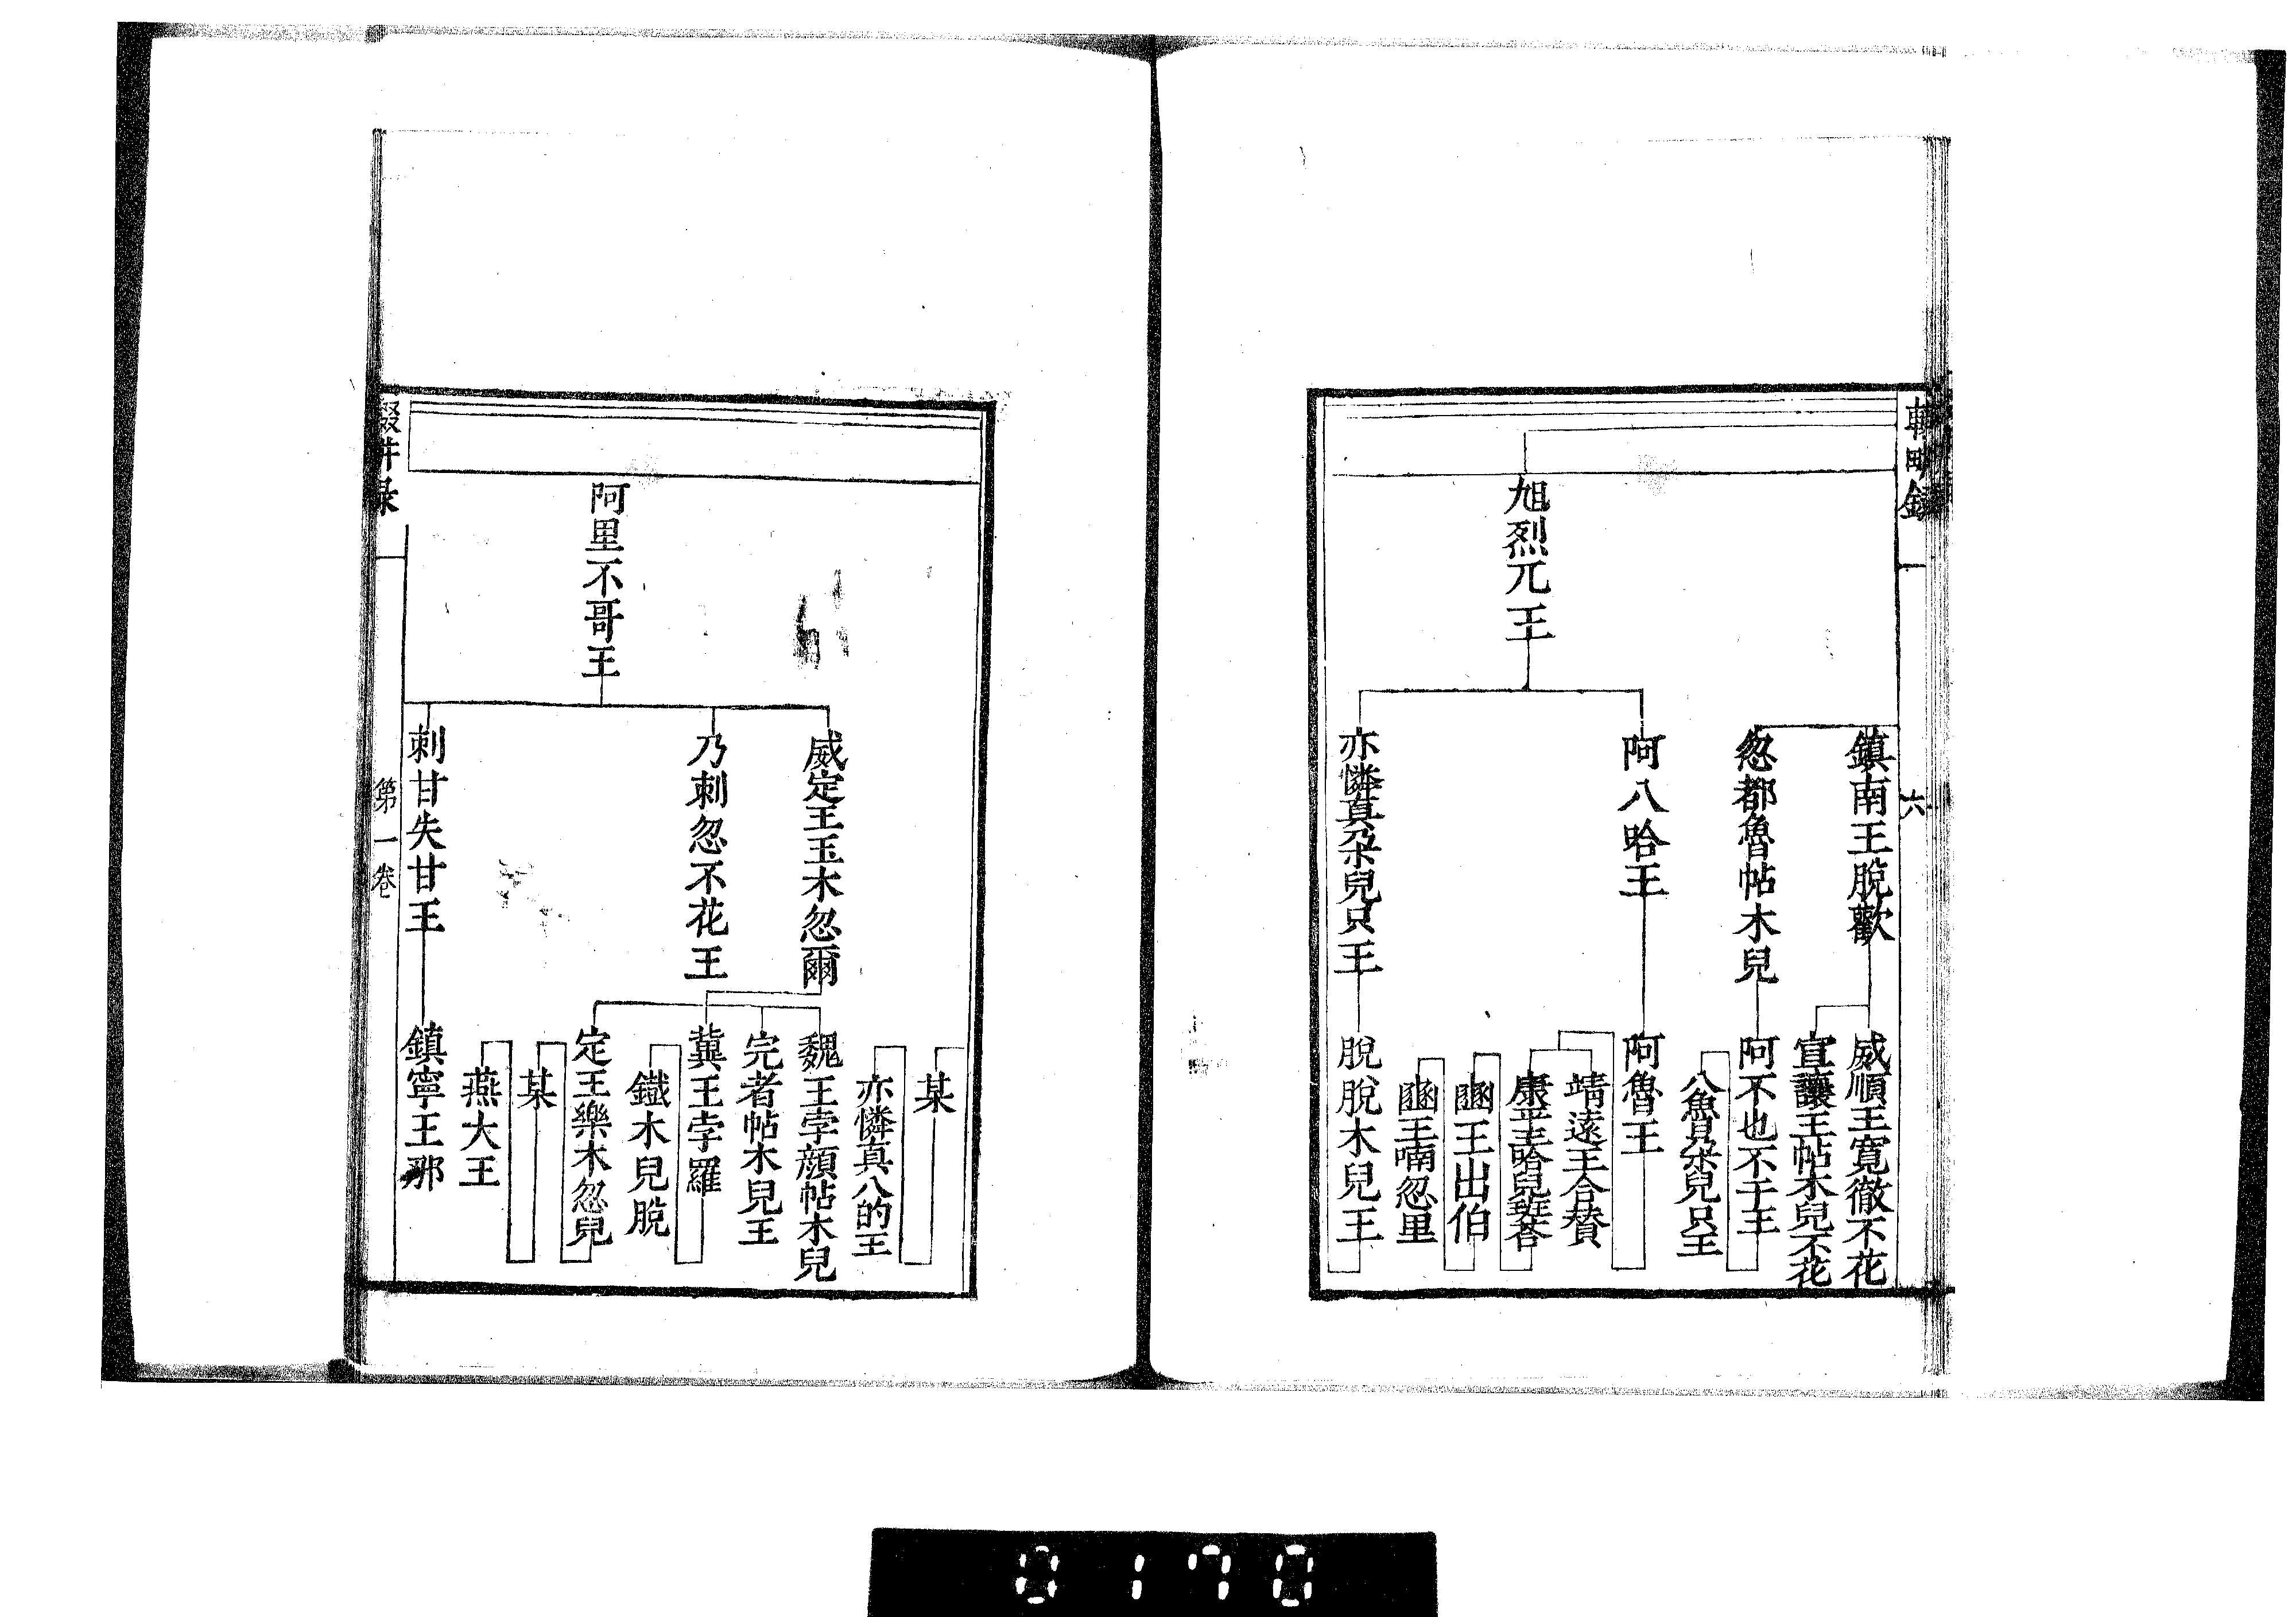 輟畊錄
一
六
鎮南王脫歡
忽都魯帖木兒
旭烈兀王
阿八哈王
亦憐真朶兒只王
威順王寛徹不花
宣讓王帖木兒不花
阿不也不干王
八魯朶兒只王
阿魯王
靖遠王合賛
康平王哈兒班荅
豳王出伯
豳王喃忽里
脫脫木兒王
阿里不哥王
威定王玉木忽爾
乃剌忽不花王
剌甘失甘王
某
亦憐真八的王
魏王孛顏帖木兒
完者帖木兒王
冀王孛羅
鐵木兒脫
定王樂木忽兒
某
燕大王
鎮寧王那
輟畊錄
一
第一卷
0170